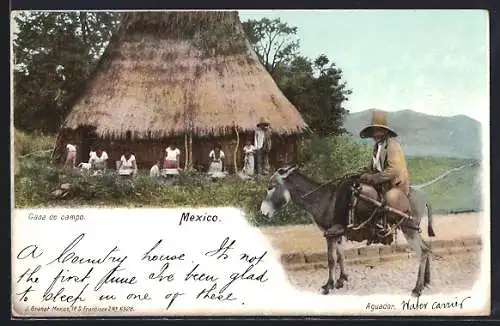 Casa de campo.
Mexico.
A Country house. It's not
the first time I've been glad
to sleep in one of these.
J. Granat Mexico, 1ª S. Francisco 2 Nº 6328.
Aguador. Water Carrier